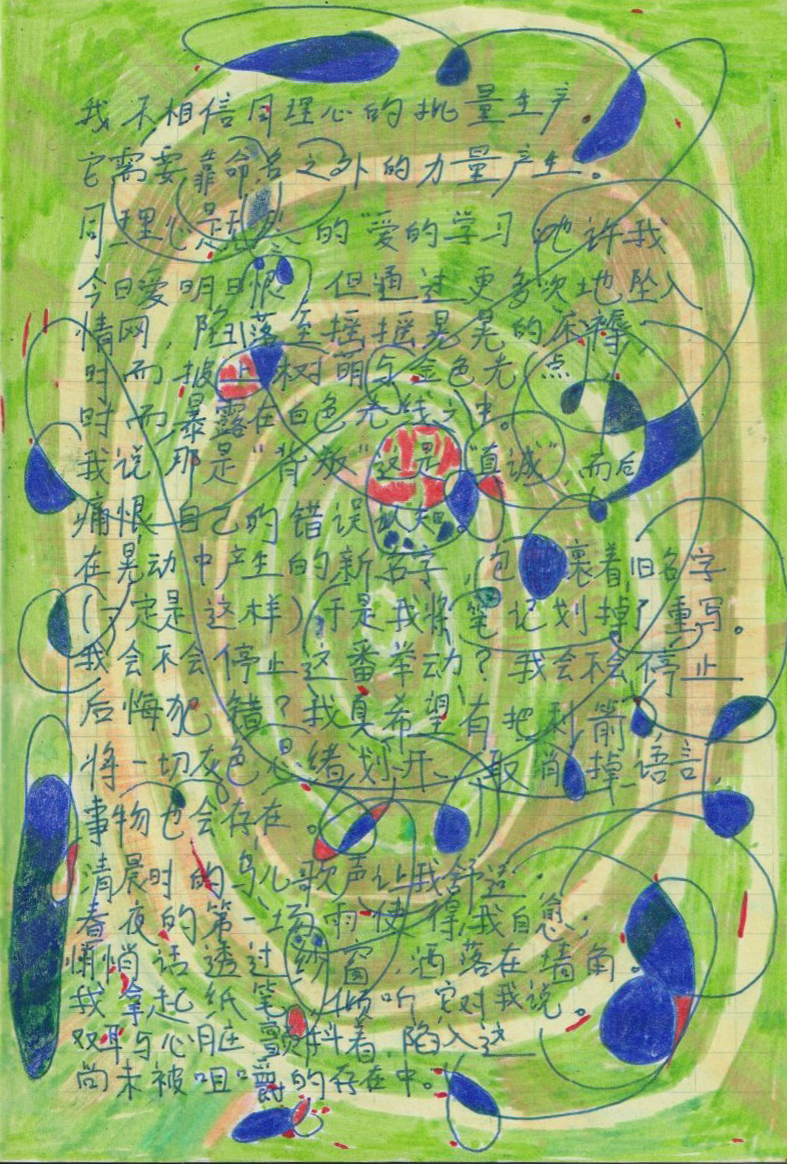 我不相信同理心的批量生产，
它需要靠命名之外的力量产生。
同理心是 的“爱的学习”，也许我
今日爱明日恨，但通过更多次地坠入
情网，陷落至摇摇晃晃的床褥，
时而披上树萌与金色光点，
时而暴露在白色光线之中。
我说那是“背叛”这是“真诚”，而后
痛恨自己的错误认知。
在晃动中产生的新名字，包裹着旧名字
（一定是这样）于是我将笔记划掉了重写。
我会不会停止这番举动？我会不会停止
后悔犯错？我真希望有把利箭
将一切灰色思绪划开、取消掉语言，
事物也会存在。
清晨时的鸟儿歌声让我舒适；
春夜的第一场雨使得我自愈；
悄悄话透过纱窗，洒落在墙角。
我拿起纸笔，倾听它对我说。
双耳与心脏颤抖着，陷入这一
尚未被咀嚼的存在中。